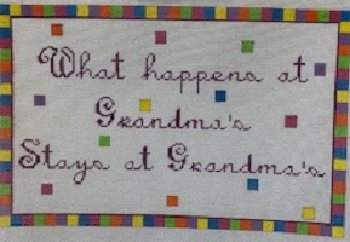 What happens at
Grandma's
Stays at Grandma's